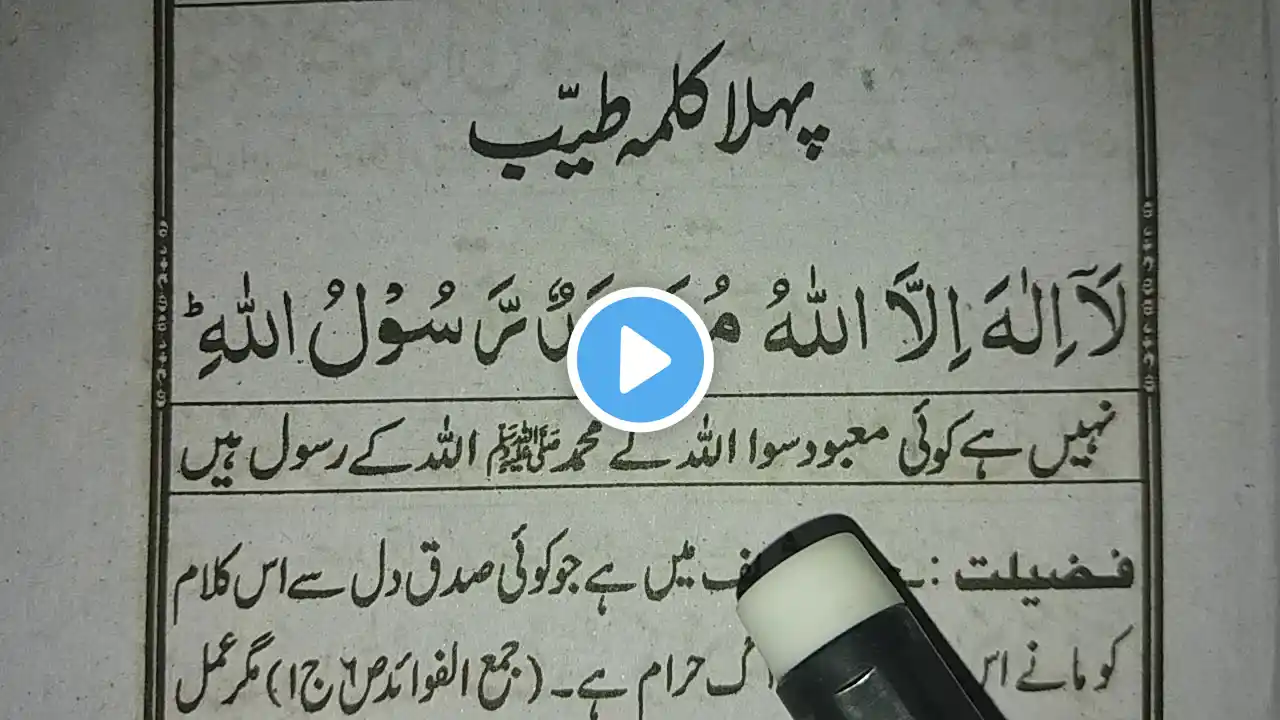 پہلا کلمہ طیّب
لَآ اِلٰهَ اِلَّا اللّٰهُ رَّسُوْلُ اللّٰهِؕ
نہیں ہے کوئی معبود سوا اللہ کے محمد ﷺ اللہ کے رسول ہیں
فضیلت : میں ہے جو کوئی صدق دل سے اس کلام
کو مانے اس حرام ہے۔ (جمع الفوائد ص ٦ ج ١) مگر عمل